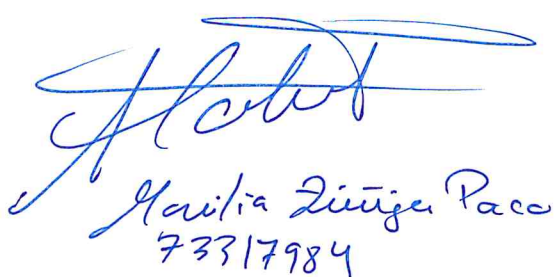 Marilia Zúñiga Paco
73317984